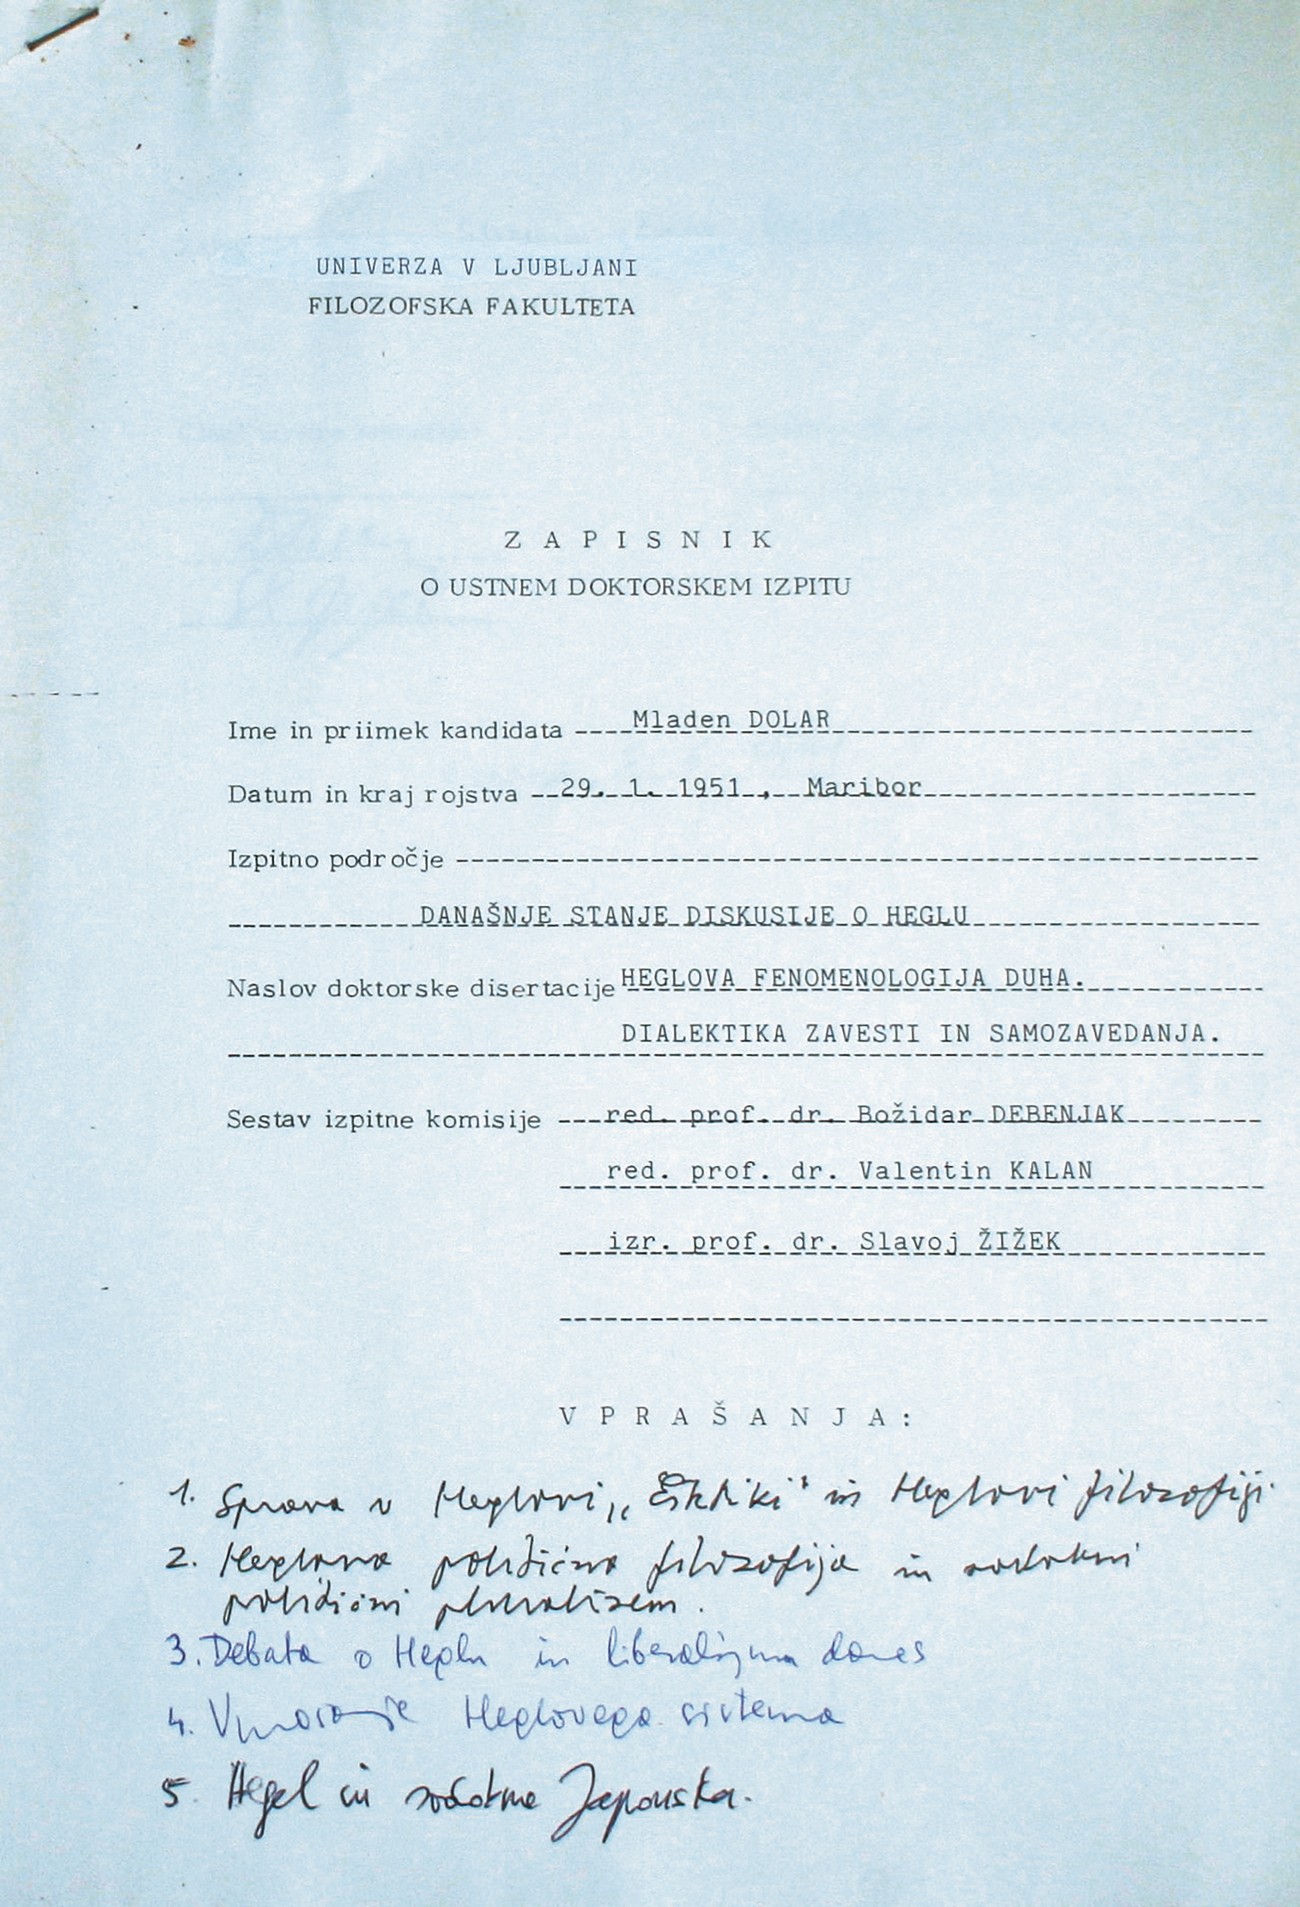 UNIVERZA V LJUBLJANI
FILOZOFSKA FAKULTETA
ZAPISNIK
O USTNEM DOKTORSKEM IZPITU
Ime in priimek kandidata Mladen DOLAR
Datum in kraj rojstva 29. 1. 1951, Maribor
Izpitno področje
DANAŠNJE STANJE DISKUSIJE O HEGLU
Naslov doktorske disertacije HEGLOVA FENOMENOLOGIJA DUHA.
DIALEKTIKA ZAVESTI IN SAMOZAVEDANJA.
Sestav izpitne komisije red. prof. dr. Božidar DEBENJAK
red. prof. dr. Valentin KALAN
izr. prof. dr. Slavoj ŽIŽEK
VPRAŠANJA:
1. Sprava v Heglovi in Heglovi filozofiji.
2. Heglova politična filozofija in sodobni
politični pluralizem.
3. Debata o Heglu in liberalizmu danes
4. Vprašanje Heglovega sistema
5. Hegel in sodobna Japonska.